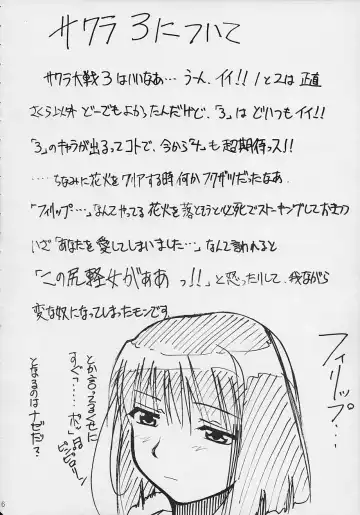 サクラ3について
サクラ大戦3はいいなぁ… うーん、イイ!! 1と2は正直
さくら以外どーでもよかったんだけど、「3」はどいつもイイ!!
「3」のキャラが出るってコトで、今から「4」も超期待っス!!
……ちなみに花火をクリアする時何かフクザツだったなぁ
「フィリップ…」なんてやってる花火を落とそうと必死でストーキングしておきつつ
いざ「あなたを愛してしまいました…」なんて言われると
「この尻軽女がぁぁっ!!」と怒ったりして、我ながら
変な奴になってしまったモンです
フィリップ…
とか言ってるくせに
すぐ「……ポッ」
ピンピローン
となるのはナゼだ?
6